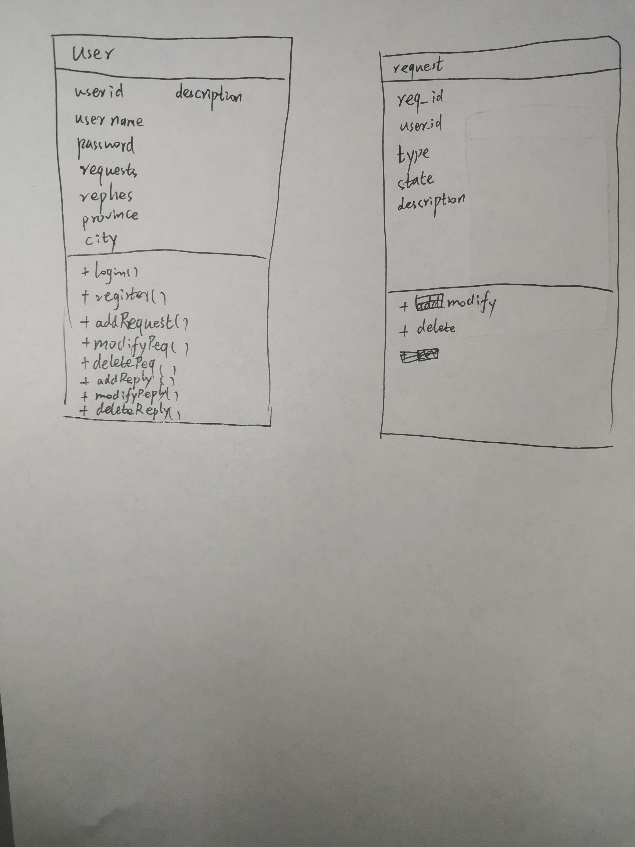 User
userid description
username
password
requests
replies
province
city
+ login()
+ register()
+ addRequest()
+ modifyReq()
+ deleteReq()
+ addReply()
+ modifyReply()
+ deleteReply()
request
req_id
userid
type
state
description
+ modify
+ delete